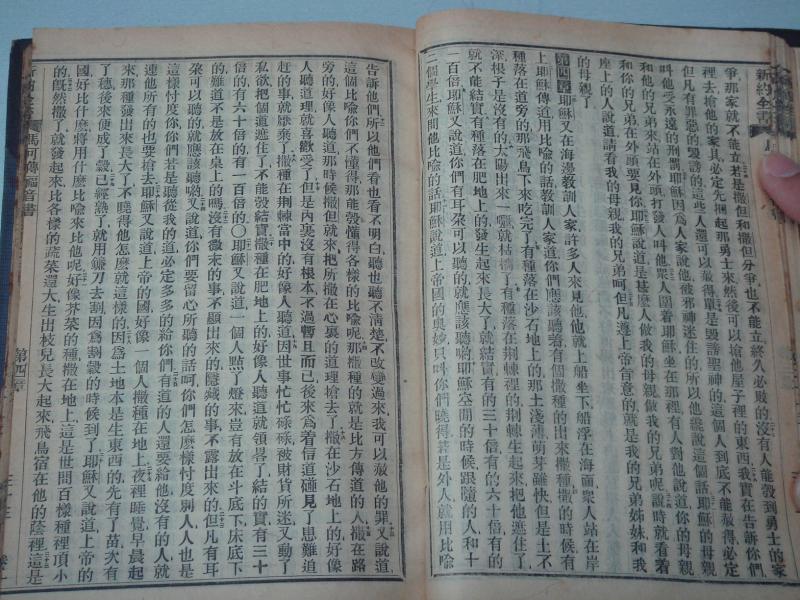 新約全書
爭、那家就不能立若是撒但和撒但分爭也不能立終久必敗的沒有人能彀到勇士的家
裡去搶他的家具必定先捆起那勇士來然後可以搶他屋子裡的東西我實在告訴你們
凡有罪惡的毀謗的這些人還可以赦得單是毀謗聖神的這個人到底不能赦得必定
叫他受永遠的刑罰耶穌因爲人家說他被邪神迷住的所以他纔說這個話耶穌的母親
和他的兄弟來站在外頭打發人叫他衆人圍着耶穌坐在那裡有人對他說道你的母親
和你的兄弟在外頭要見你耶穌說道是甚麼人做我的母親做我的兄弟呢說時就看着
座上的人說道請看我的母親我的兄弟呵但凡遵上帝旨意的就是我的兄弟姊妹和我
的母親了
第四章耶穌又在海邊教訓人家許多人來見他他就上船坐下船浮在海面衆人站在岸
上耶穌傳道用比喻的話教訓人家道你們應該聽着有個撒種的出來撒種撒的時候有
種落在道旁的那飛鳥下來吃完了有種落在沙石地上的那土淺薄萌芽雖快但是土不
深根子是沒有的太陽出來一曬就枯槁了有種落在荆棘裡的荆棘生起來把他遮住了
就不能結實有種落在肥地上的發生起來長大了就結實有的三十倍有的六十倍有的
一百倍耶穌又說道你們有耳朶可以聽的就應該聽喲耶穌空閒的時候跟隨的人和十
二個學生來問他比喻的話耶穌說道上帝國的奧妙只叫你們曉得若是外人就用比喻
告訴他們所以他們看也看不明白聽也聽不清楚不改變過來我可以赦他的罪又說道
這個比喻你們不懂得那能彀懂得各樣的比喻呢那撒種的就是比方傳道的人撒在路
旁的好像人聽道那時候撒但就來把所撒在心裏的道理搶去了撒在沙石地上的好像
人聽道理就喜歡受了但是內裏沒有根本不過暫且而已後來爲着信道碰見了患難迫
趕的事就厭棄了撒種在荆棘當中的好像人聽道因世事忙忙碌碌被財貨所迷又動了
私欲把個道遮住了不能彀結實撒種在肥地上的好像人聽道就領畧了結的實有三十
倍的有六十倍的有一百倍的〇耶穌又說道一個人點了燈來豈有放在斗底下床底下
的難道不是放在台上的嗎沒有微末的事不顯出來的隱藏的事不露出來的但凡有耳
朶可以聽的就應該聽喲又說道你們要留心所聽的話呵你們怎麼樣忖度別人人也是
這樣忖度你你們若是聽從我的道必定多多的給你們有道的人還要給他沒有的人就
連他所有的也要奪去耶穌又說道上帝的國好像一個人撒種在地上夜裡睡覺早晨起
來那種發出來長大了不曉得他怎麼就這樣的因爲土地本是生東西的先有了苗次有
了穗後來便成了穀已經熟了就用鐮刀去割因爲割穀的時候到了耶穌又說道上帝的
國好比什麼將用什麼比喻來比他呢好像芥菜的種撒在地上這是世間百樣種裡頂小
的既然撒了就發起來比各樣的蔬菜還大生出枝兒長大起來飛鳥宿在他的蔭裡這是
新約全書
馬可傳福音書
第四章
三十三